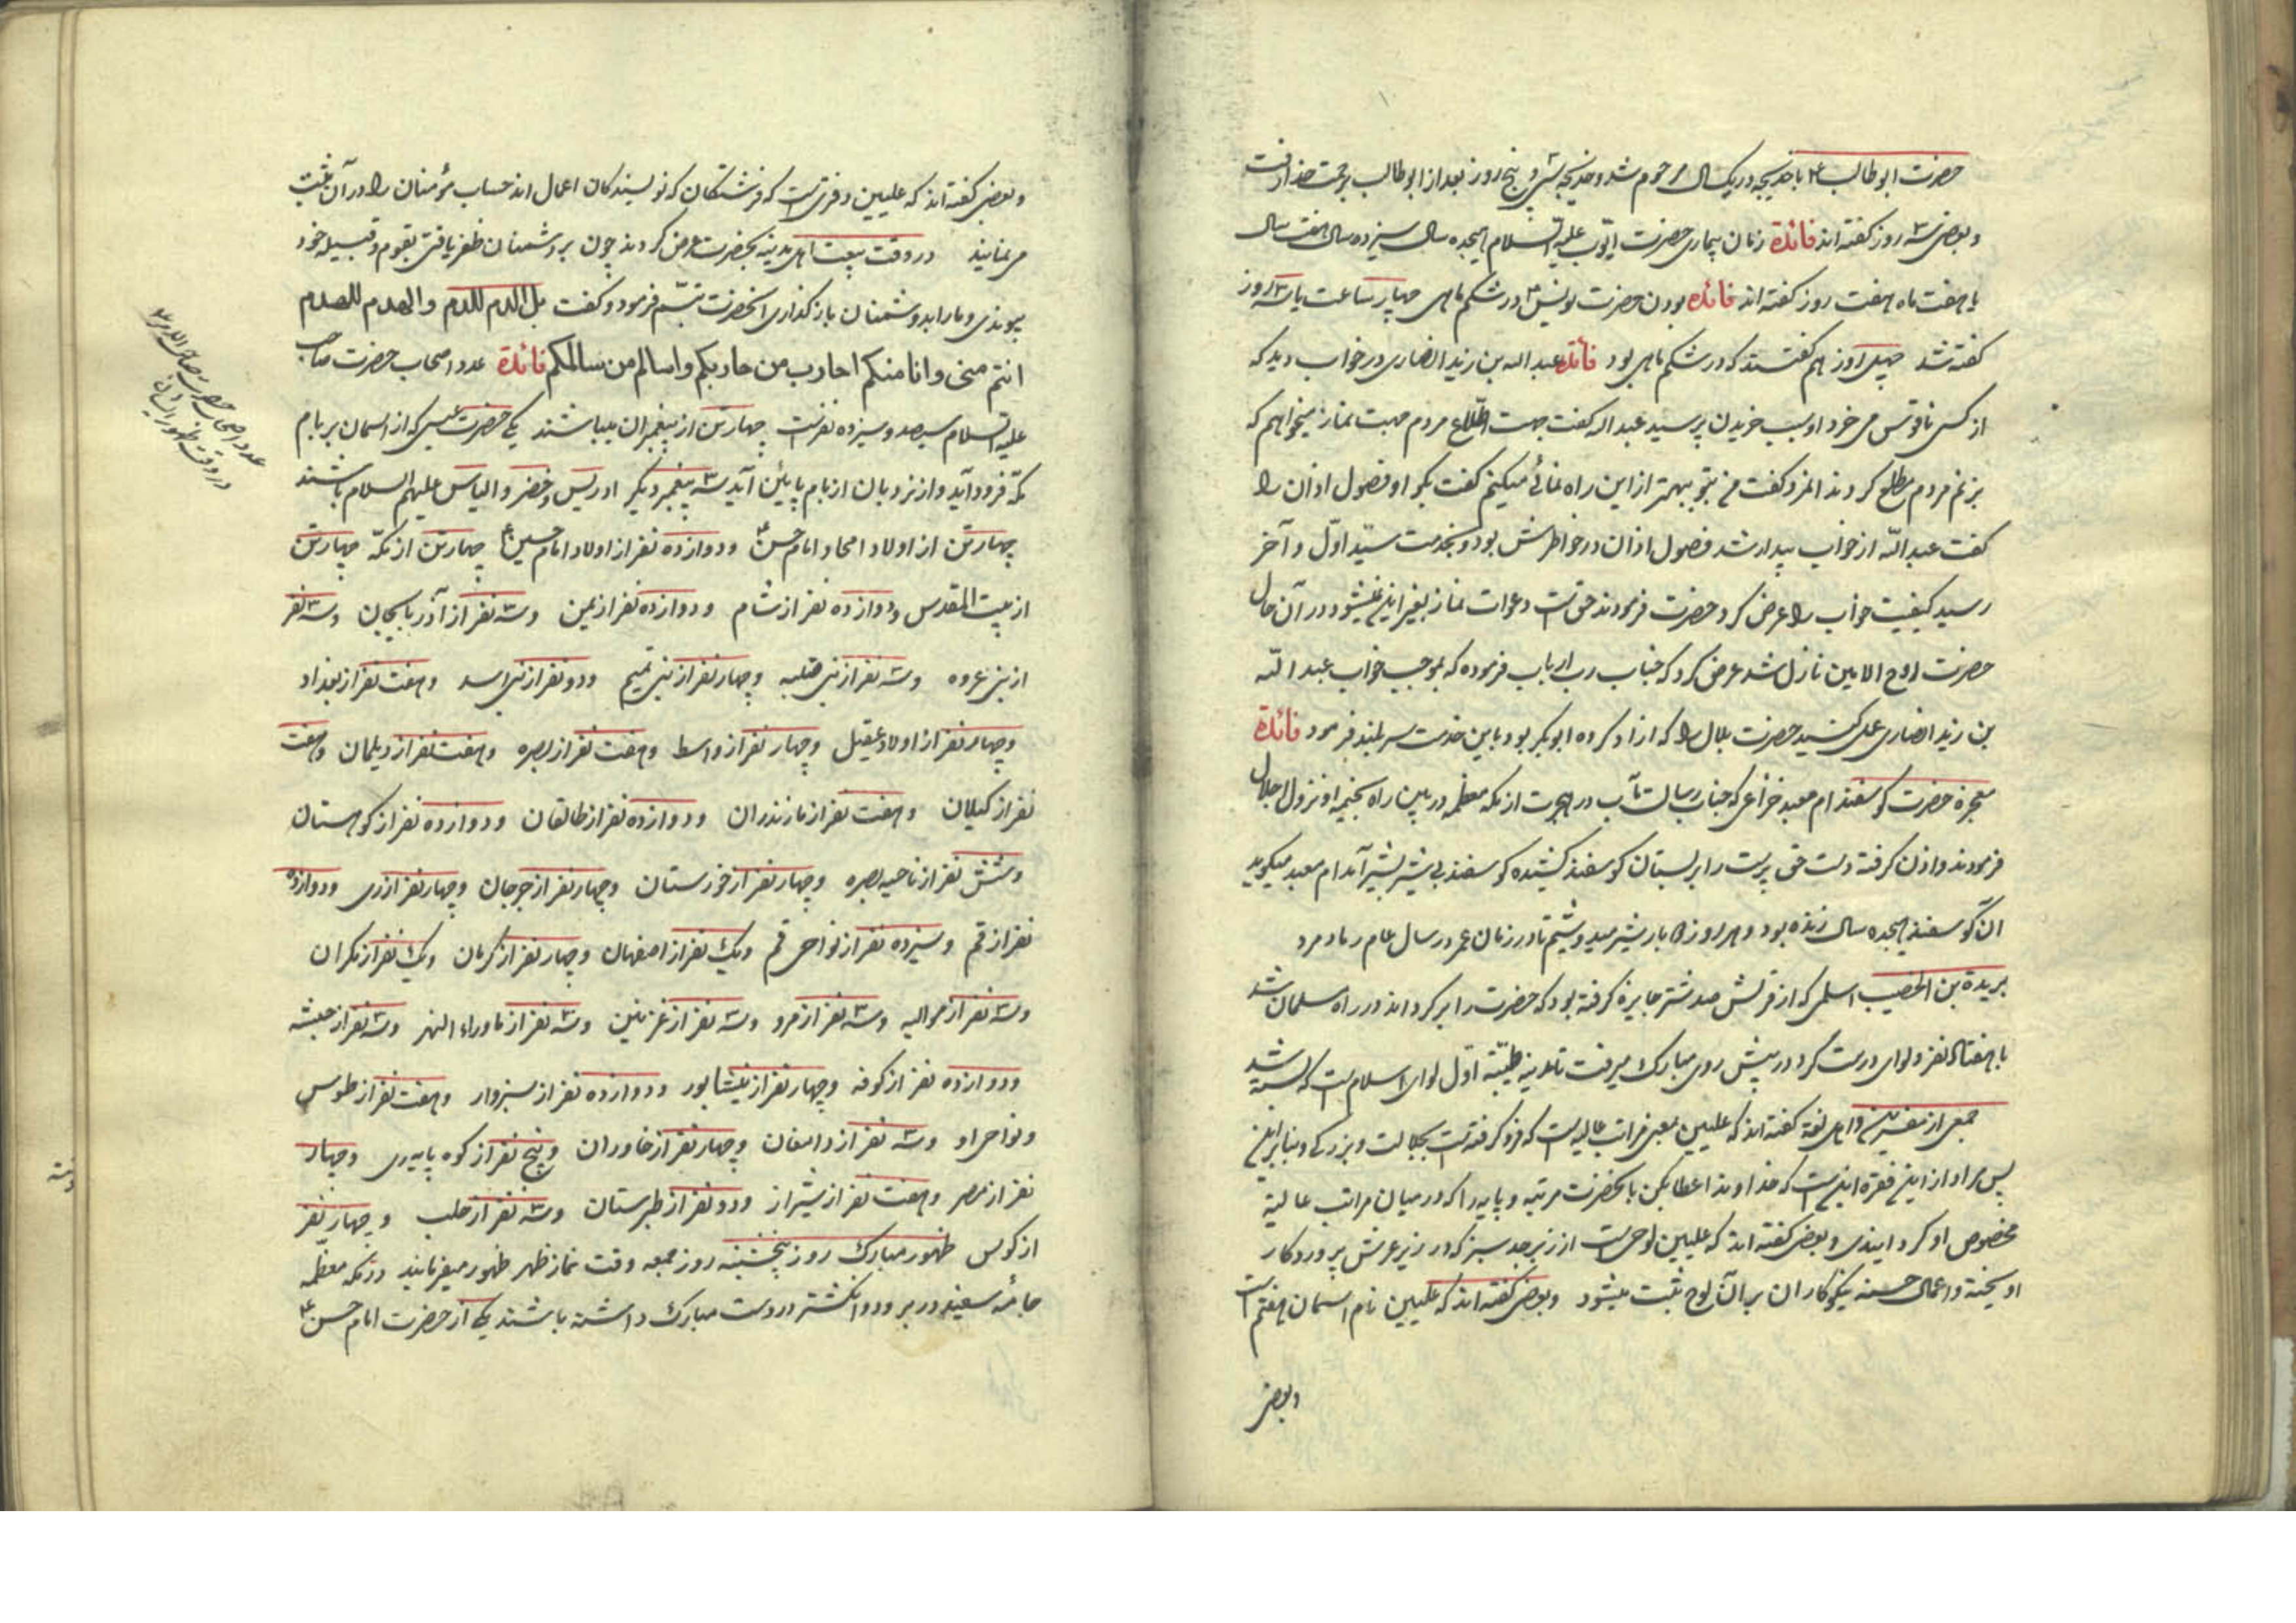 حضرت ابوطالب ع با خدیجه در یک سال مرحوم شد و خدیجه بسی و پنج روز بعد از ابوطالب برحمت خدا رفت
و بعضی سه روز گفته‌اند فائدة زمان بیماری حضرت ایّوب علیه السّلام هیجده سال سیزده سال هفت سال
یا هفت ماه هفت روز گفته‌اند فائده بودن حضرت یونس ع در شکم ماهی چهار ساعت یا سه روز
گفته شد چهل روز هم گفتند که در شکم ماهی بود فائدة عبد الله بن زید انصاری در خواب دید که
از کسی ناقوس می خرد او سبب خریدن پرسید عبد الله گفت جهت اطّلاع مردم جهت نماز میخواهم که
بزنم مردم مطلع کردند المزد گفت من بتو بهتر از این راه نمائی میکنم گفت بگو او فصول اذان را
گفت عبد اللّه از خواب بیدار شد فصول اذان در خاطرش بود و بخدمت سیّد اوّل و آخر
رسید کیفیت خواب را عرض کرد حضرت فرمودند حق است دعوات نماز بغیر این نمیشود در آن حال
حضرت روح الامین نازل شد عرض کرد که جناب رب ارباب فرموده که بموجب خواب عبد اللّه
بن زید انصاری عمل کنید حضرت بلال را که ازاد کرده ابوبکر بود باین خدمت سربلند فرمود فائدة
معجزه حضرت گوسفند ام معبد خزاعی که جناب رسالت مآب در هجرت از مکه معظمه در بین راه بخیمه او نزول اجلال
فرمودند و اذن گرفته دست حق پرست را بر پستان گوسفند کشیده گوسفند بی شیر بشیر آمد ام معبد میگوید
ان گوسفند هیجده سال زنده بود و هر روز ه بار شیر میدوشیم تا در زمان عمر در سال عام رماد مرد
بریدة بن الخصیب اسلمی که از قریش صد شتر جایزه گرفته بود که حضرت را برگرداند در راه مسلمان شد
با هفتاد نفر و لوای درست کرد در پیش روی مبارک میرفت تا مدینه طیّبه اوّل لوای اسلام است که بسته شد
جمعی از مفسرین و اهل لغة گفته‌اند که علیین بمعنی مراتب عالیه است که فرو گرفته است بجلالت و بزرگی و بنابراین
پس مراد از این فقره این است که خداوندا عطا بکن بانحضرت مرتبه و پایه را که در میان مراتب عالیة
مخصوص او گردانیدی و بعضی گفته‌اند که علیین لوحی است از زبرجد سبز که در زیر عرش پروردگار
اویخته و اعمال حسنه نیکوکاران بر آن لوح ثبت میشود و بعضی گفته‌اند که علیین نام اسمان هفتم است
و بعضی
و بعضی گفته‌اند که علیین دفتری است که فرشتگان که نویسندگان اعمال‌اند حساب مؤمنان را در آن ثبت
می نمایند در وقت بیعت اهل مدینه بحضرت عرض کردند چون بر دشمنان ظفر یافتی بقوم و قبیله خود
پیوندی و ما را بدشمنان بازگذاری انحضرت تبسّم فرمود و گفت بل الدم للدم والهدم للهدم
انتم منی وانا منکم احارب من حاربکم واسالم من سالمکم فائدة عدد اصحاب حضرت صاحب
علیه السلام سیصد و سیزده نفر است چهار تن از پیغمبران میباشند یکی حضرت عیسی که از اسمان بر بام
مکّه فرود آید و از نردبان از بام پایین آید سه پیغمبر دیگر ادریس و خضر و الیاس علیهم السلام باشند
چهار تن از اولاد امجاد امام حسن ع و دوازده نفر از اولاد امام حسین ع چهار تن از مکّه چهار تن
از بیت المقدس و دوازده نفر از شام و دوازده نفر از یمن و سه نفر از آذربایجان و سه نفر
از بنی عروه و سه نفر از بنی ضلبه و چهار نفر از بنی تمیم و دو نفر از بنی اسد و هفت نفر از بغداد
و چهار نفر از اولاد عقیل و چهار نفر از واسط و هفت نفر از بصره و هفت نفر از دیلمان و هفت
نفر از گیلان و هفت نفر از مازندران و دوازده نفر از طالقان و دوازده نفر از کوهستان
و شش نفر از ناحیه بصره و چهار نفر از خوزستان و چهار نفر از جرجان و چهار نفر از ری و دوازده
نفر از قم و سیزده نفر از نواحی قم و یک نفر از اصفهان و چهار نفر از کرمان و یک نفر از مکران
و سه نفر از موالیه و سه نفر از مرو و سه نفر از غزنین و سه نفر از ماوراء النهر و سه نفر از حبشه
و دوازده نفر از کوفه و چهار نفر از نیشابور و دوازده نفر از سبزوار و هفت نفر از طوس
و نواحی او و سه نفر از دامغان و چهار نفر از خاوران و پنج نفر از کوه پایه ری و چهار
نفر از مصر و هفت نفر از شیراز و دو نفر از طبرستان و سه نفر از حلب و چهار نفر
از کوبس ظهور مبارک روز پنجشنبه روز جمعه وقت نماز ظهر ظهور میفرمایند در مکه معظّمه
جامه سفید در بر و دو انگشتر در دست مبارک داشته باشند یکی از حضرت امام حسن ع
عدد اصحاب حضرت صاحب الامر ع
در وقت ظهور ایشان